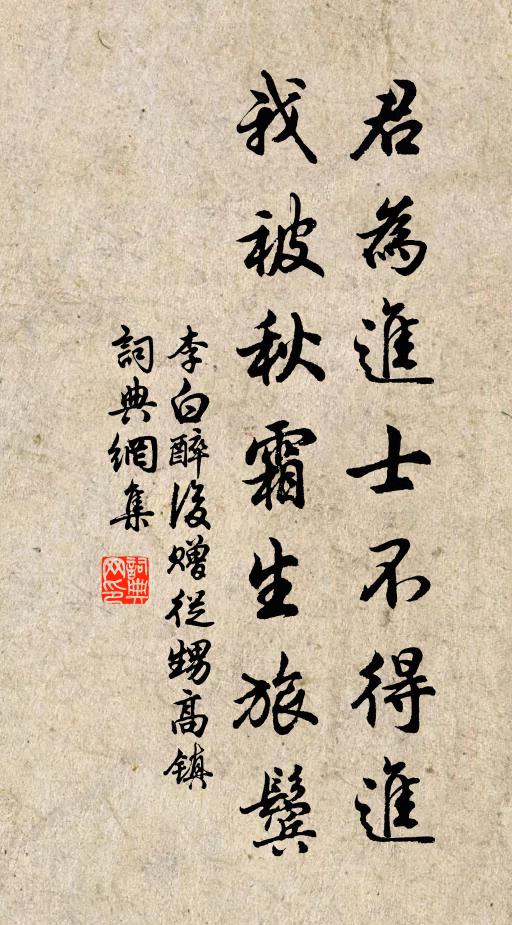 君為進士不得進
我被秋霜生旅鬢
李白醉後贈從甥高镇
詞典網集
詞典网印